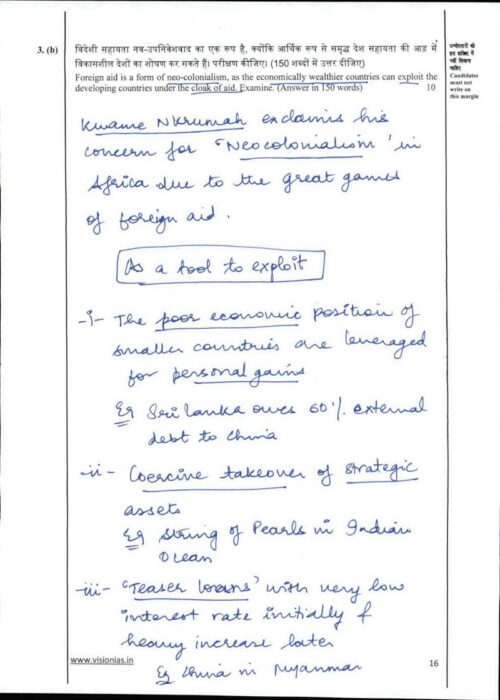 3. (b) विदेशी सहायता नव-उपनिवेशवाद का एक रूप है, क्योंकि आर्थिक रूप से समृद्ध देश सहायता की आड़ में
विकासशील देशों का शोषण कर सकते हैं। परीक्षण कीजिए। (150 शब्दों में उत्तर दीजिए)
Foreign aid is a form of neo-colonialism, as the economically wealthier countries can exploit the
developing countries under the cloak of aid. Examine. (Answer in 150 words) 10
उम्मीदवारों को
इस हाशिए में
नहीं लिखना
चाहिए
Candidates
must not
write on
this margin
Kwame Nkrumah exclaims his
concern for 'Neocolonialism' in
Africa due to the great games
of foreign aid.
As a tool to exploit
-i- The poor economic position of
smaller countries are leveraged
for personal gains
Eg Sri Lanka owes 60% external
debt to China
-ii- Coercive takeover of strategic
assets
Eg String of Pearls in Indian
Ocean
-iii- 'Teaser loans' with very low
interest rate initially &
heavy increase later
Eg China in Myanmar
www.visionias.in
16